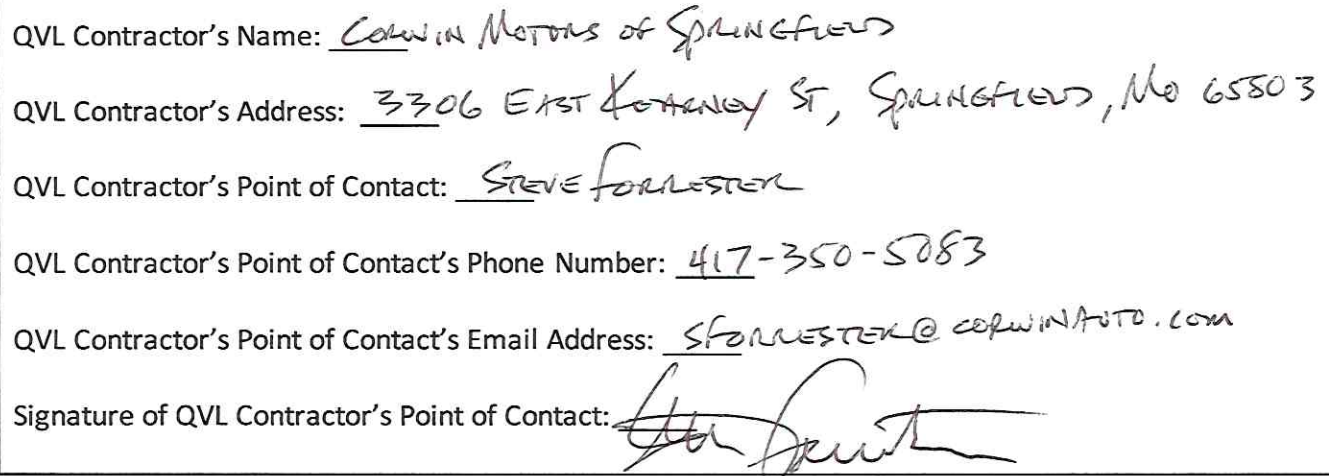 QVL Contractor's Name: CORWIN MOTORS OF SPRINGFIELD
QVL Contractor's Address: 3306 EAST KEARNEY ST, SPRINGFIELD, MO 65803
QVL Contractor's Point of Contact: STEVE FORRESTER
QVL Contractor's Point of Contact's Phone Number: 417-350-5083
QVL Contractor's Point of Contact's Email Address: SFORRESTER@CORWINAUTO.COM
Signature of QVL Contractor's Point of Contact: